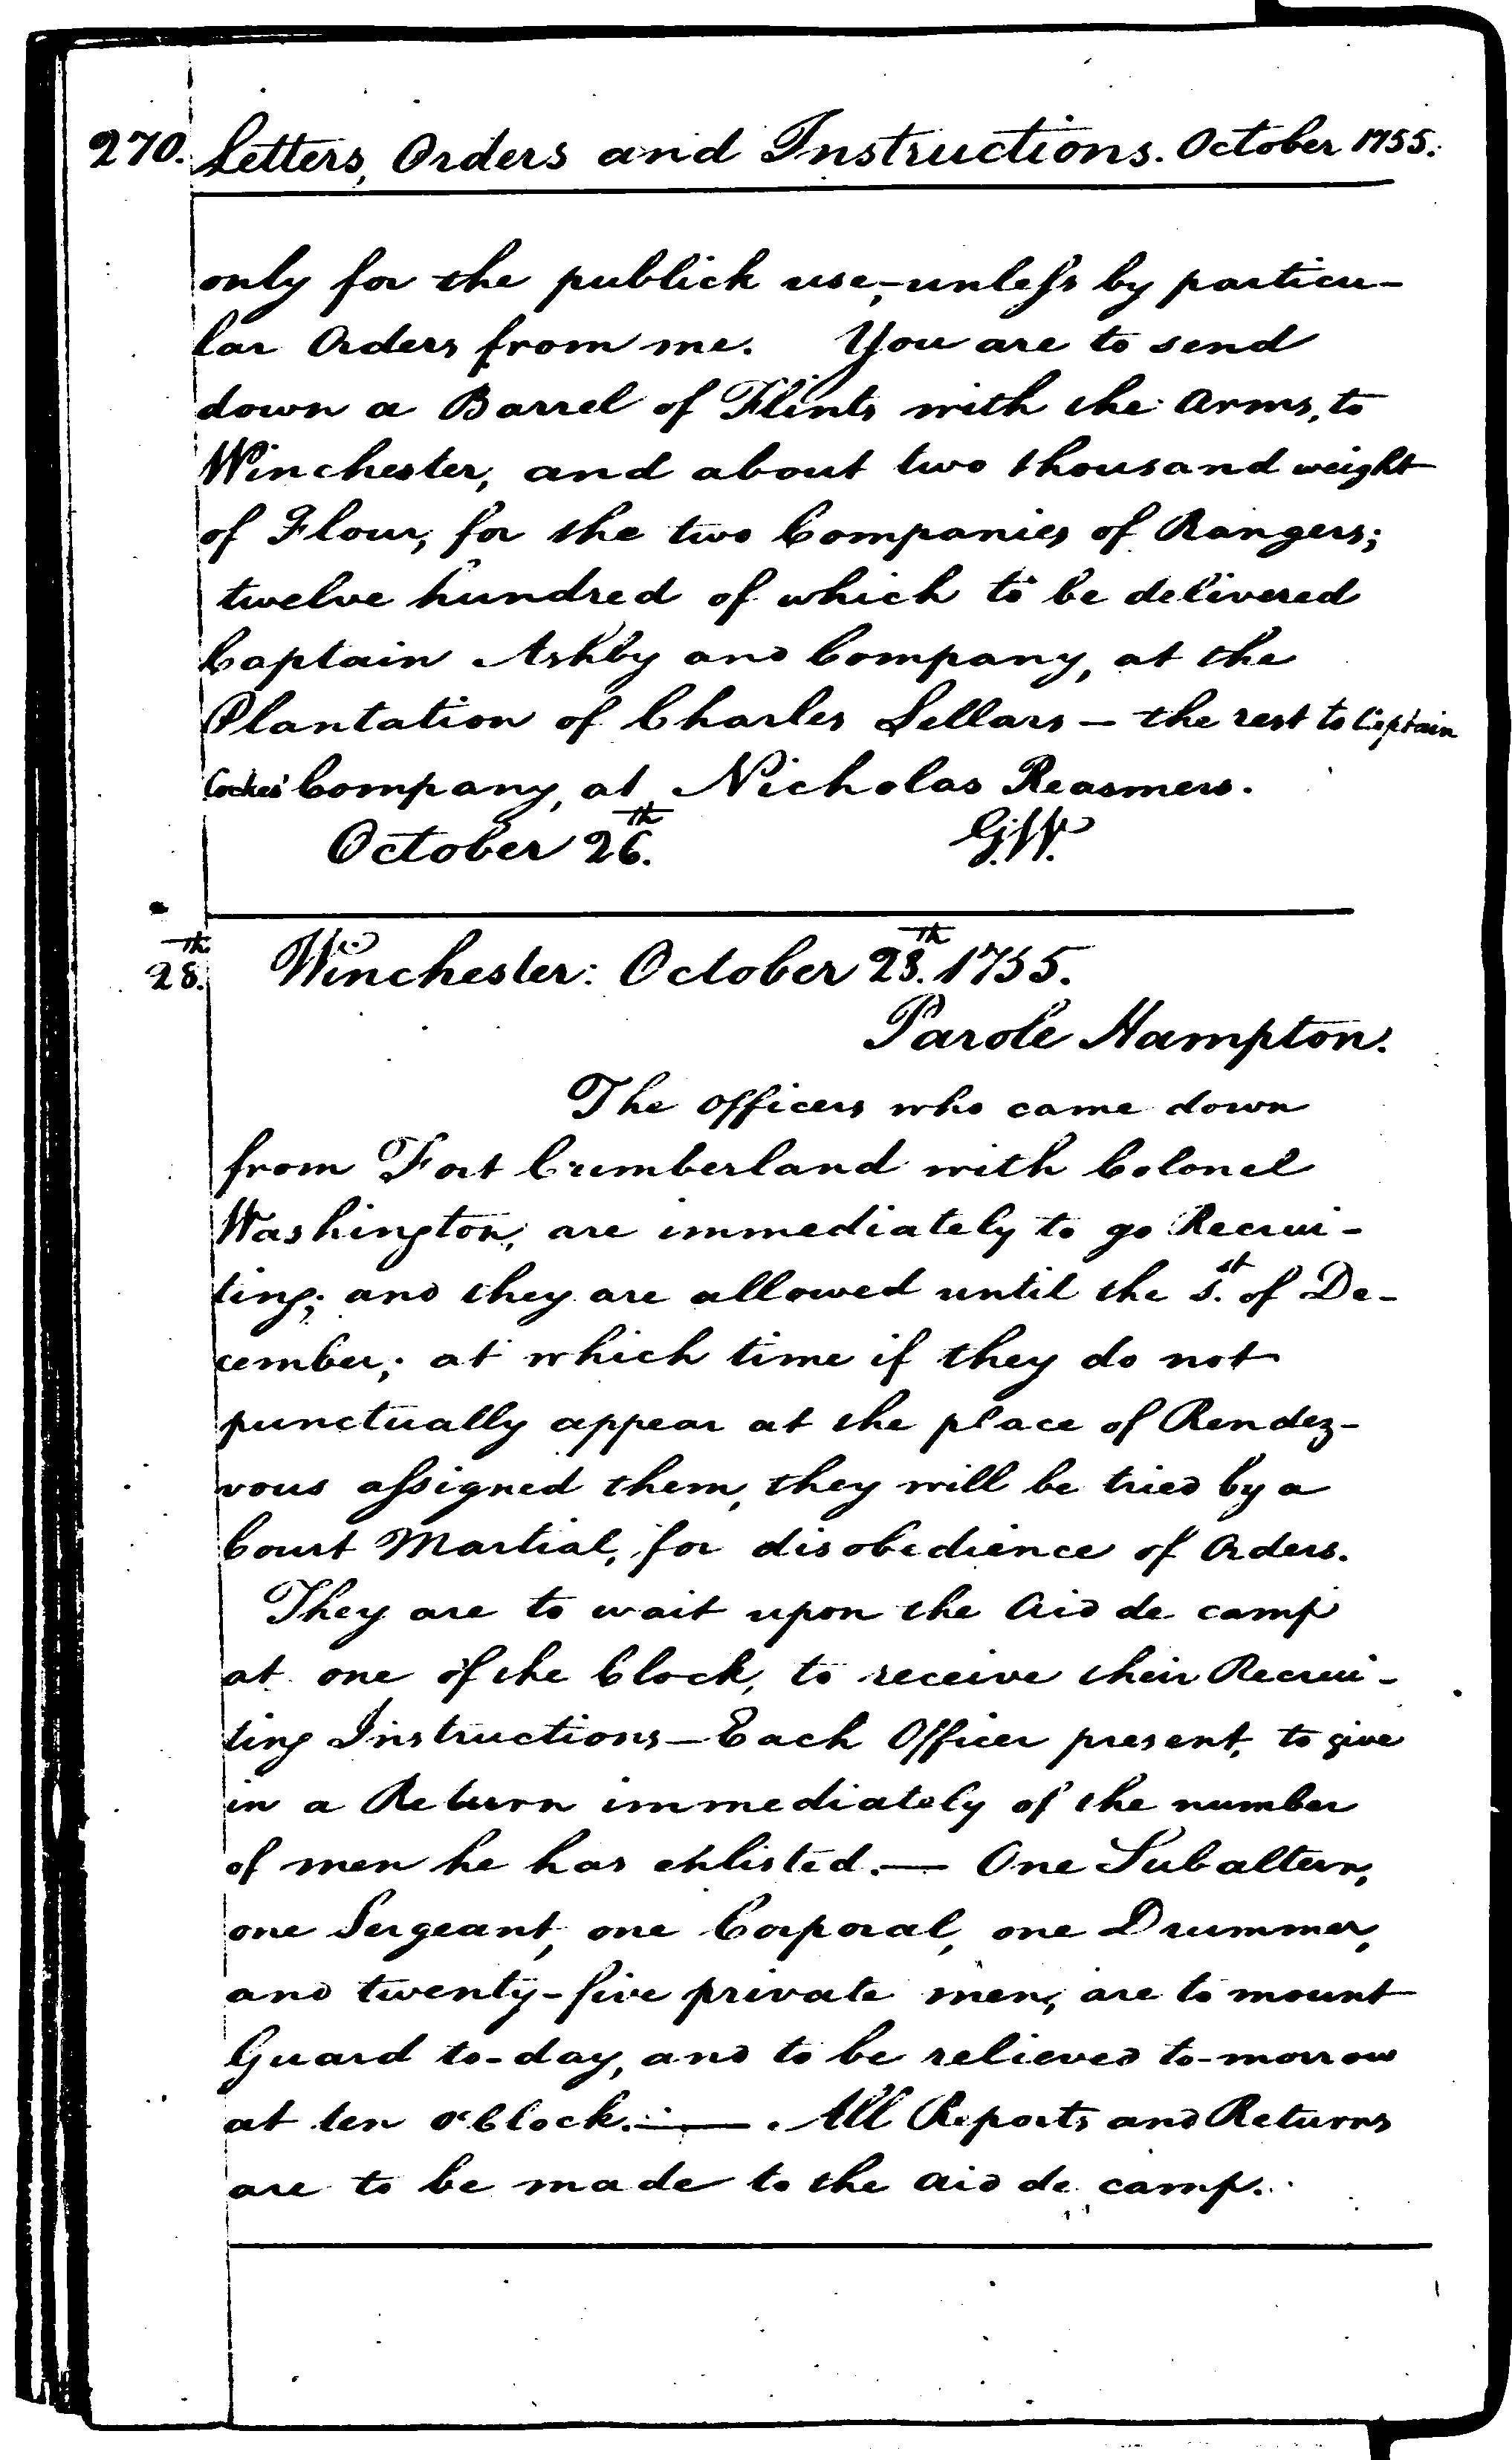 270. Letters, Orders and Instructions. October 1755.
only for the publick use,-unless by particu-
lar Orders from me. You are to send
down a Barrel of Flints with the Arms, to
Winchester, and about two thousand weight
of Flour, for the two Companies of Rangers;
twelve hundred of which to be delivered
Captain Ashby and Company, at the
Plantation of Charles Sellars - the rest to Captain
Cockes' Company, at Nicholas Reasmers.
October 26th. G:W.
28th. Winchester: October 28th. 1755.
Parole Hampton.
The officers who came down
from Fort Cumberland with Colonel
Washington, are immediately to go Recrui-
ting; and they are allowed until the 1st. of De-
cember; at which time if they do not
punctually appear at the place of Rendez-
vous assigned them, they will be tried by a
Court Martial, for disobedience of Orders.
They are to wait upon the Aid de camp
at one of the Clock, to receive their Recrui-
ting Instructions - Each Officer present, to give
in a Return immediately of the number
of men he has enlisted. — One Subaltern,
one Sergeant, one Corporal, one Drummer,
and twenty-five private men, are to mount
Guard to-day, and to be relieved to-morrow
at ten o'Clock. — All Reports and Returns
are to be made to the Aid de camp.